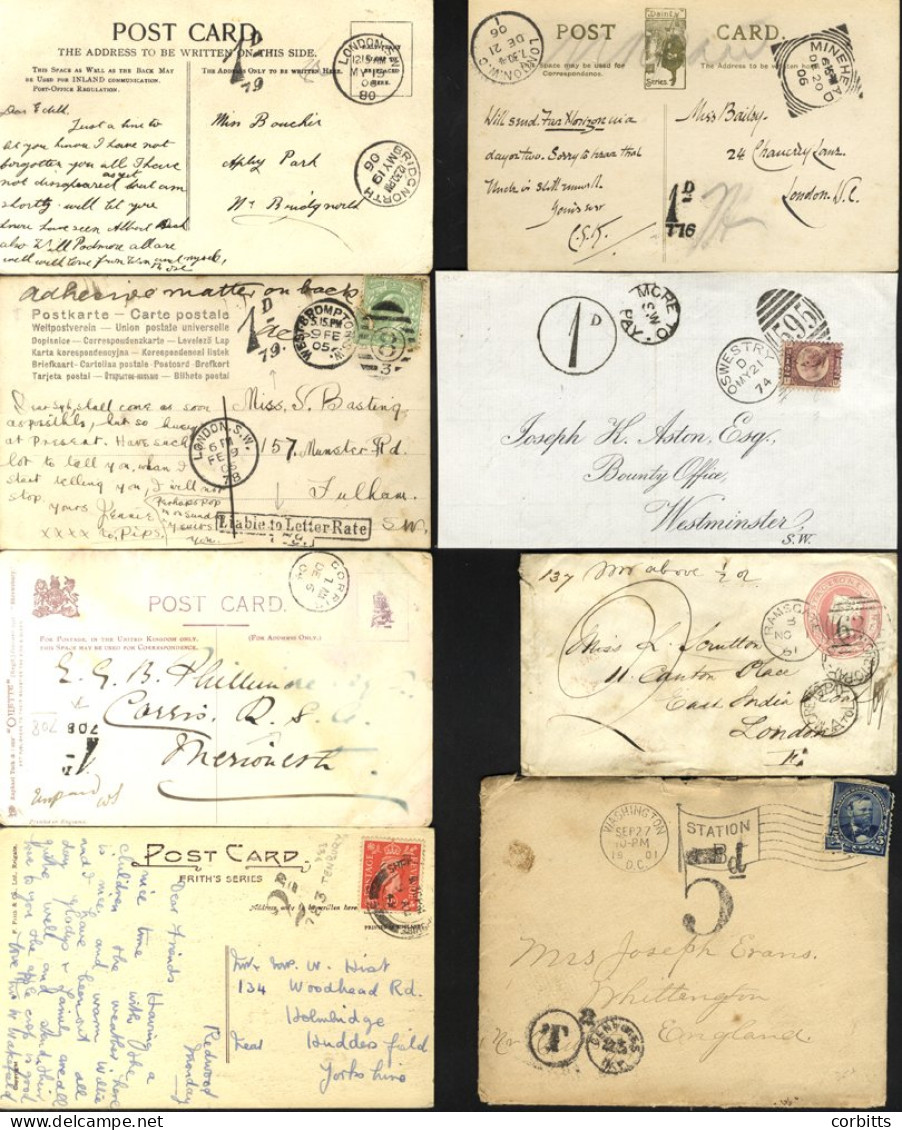 POST CARD.
THE ADDRESS TO BE WRITTEN ON THIS SIDE.
THIS SPACE AS WELL AS THE BACK MAY
BE USED FOR INLAND COMMUNICATION.
POST-OFFICE REGULATION.
THE ADDRESS ONLY TO BE WRITTEN HERE.
1D
79
LONDON. S.W.
12.15 AM
MY 19
06
80
BRIDGNORTH
MY 19
06
Dear Edith
Just a line to
let you know I have not
forgotten you all I have
not disappeared as yet but am
shortly will let you
know have seen Albert
also Will Podmore all are
well with love from
Miss Bouchir
Apley Park
Nr Bridgnorth
POST CARD.
Dainty
Series.
This space may be used for
Correspondence.
The Address to be written
LONDON. W.C.
7.30 AM
DE 21
06
MINEHEAD
DE 20
06
Will send Far Horizon in a
day or two. Sorry to hear that
Uncle is still unwell.
Yours ever
C.S.K.
Miss Bailey
24 Chancery Lane.
London. W.C.
1D
T76
adhesive matter on back
Postkarte - Carte postale
Weltpostverein - Union postale universelle
Dopisnice - Correspondenzkarte - Levelező Lap
Karta korespondencyjna - Korespondenční lístek
Briefkaart - Cartolina postale - Postcard - Brefkort
Tarjeta postal - Открытое письмо - Bilhete postal
1D
79.
WEST BROMPTON. S.W.
3.15 PM
9 FE
05
8
3
LONDON. S.W.
6 PM
FE 9
05
78
shall come as soon
as possible, but so busy
at present. Have such a
lot to tell you, when I
start telling you, I will not
stop. yours Jennie
xxxx to Pips.
perhaps pop
in on sunday
to see
you.
Miss. S. Basting,
157, Munster Rd.
Fulham.
S.W.
Liable to Letter Rate
1D
MORE TO
PAY.
S.W.
595
OSWESTRY
D
MY 21
74
Joseph H. Aston, Esq.,
Bounty Office,
Westminster,
S.W.
POST CARD.
FOR POSTAGE, IN THE UNITED KINGDOM ONLY,
THIS SPACE MAY BE USED FOR CORRESPONDENCE.
(FOR ADDRESS ONLY.)
CORRIS
DE 15
04
E. G. B. Phillimore
Corris R. S. O.
Merioneth
1D
708
708
Unpaid
"OILETTE"
137 Mr above ½ oz
2
RAMSGATE
B
NO
61
Miss L. Scrutton
11 Canton Place
East India Road
London
E.
POST CARD
FRITH'S SERIES
Address only to be written here.
2D
783 TENBURY
Dear Friends
Having a
nice time with the
children the weather here
is nice and warm Willie
and I have been out all
day, Gladys & family are all
quite well and
love to you the apple crop is good
love from W Wakefield
Redwood
Monday
Mr & Mrs W. Hirst
134 Woodhead Rd.
Holmbridge
Near Huddersfield
Yorkshire
WASHINGTON
SEP 27
10-PM
1901
D.C.
STATION
5d
Mrs Joseph Evans.
Whittington
England.
T
2
corbitts